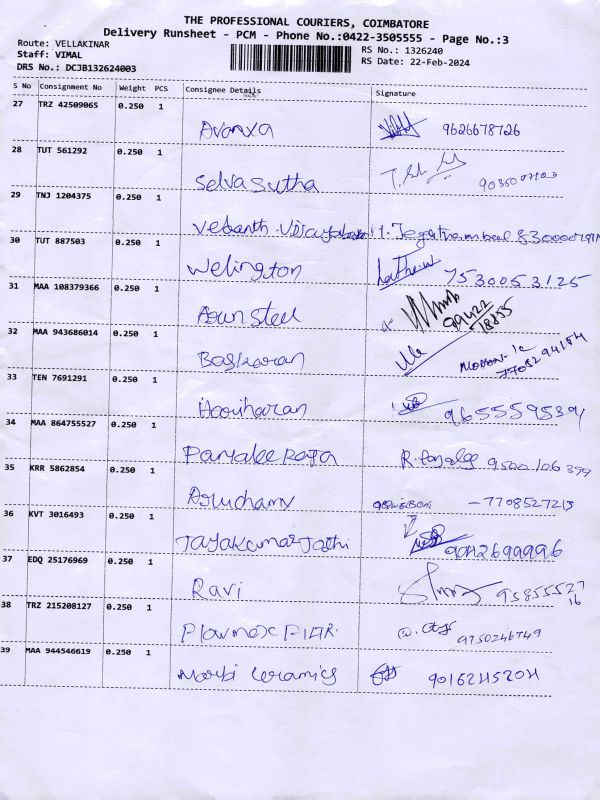 THE PROFESSIONAL COURIERS, COIMBATORE
Delivery Runsheet - PCM - Phone No.:0422-3505555 - Page No.:3
Route: VELLAKINAR RS No.: 1326240
Staff: VIMAL RS Date: 22-Feb-2024
DRS No.: DCJB132624003
S No Consignment No Weight PCS Consignee Details Signature
27 TRZ 42509065 0.250 1
Avanxa 9626678726
28 TUT 561292 0.250 1
Selva Sutha
29 TNJ 1204375 0.250 1
Vedanth
30 TUT 887503 0.250 1
Welington 7530053125
31 MAA 108379366 0.250 1
Arun Steel 99422
78855
32 MAA 943686014 0.250 1
Baskaran
7708294154
33 TEN 7691291 0.250 1
Hariharan 9655595391
34 MAA 864755527 0.250 1
R. 9500106399
35 KRR 5862854 0.250 1
Aruchamy - 7708527213
36 KVT 3016493 0.250 1
Jayakumar Jothi 9042699996
37 EDQ 25176969 0.250 1
Ravi 95855527
16
38 TRZ 215208127 0.250 1
9750246749
39 MAA 944546619 0.250 1
Morbi Ceramics 9016245204